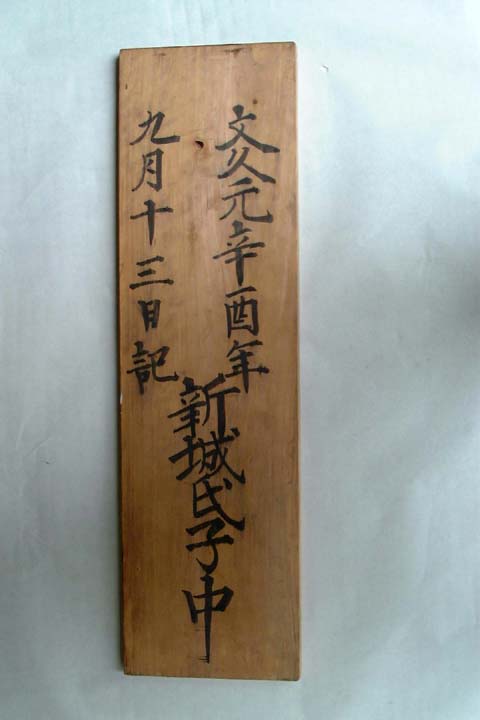 文久元辛酉年
九月十三日記
新城氏子中